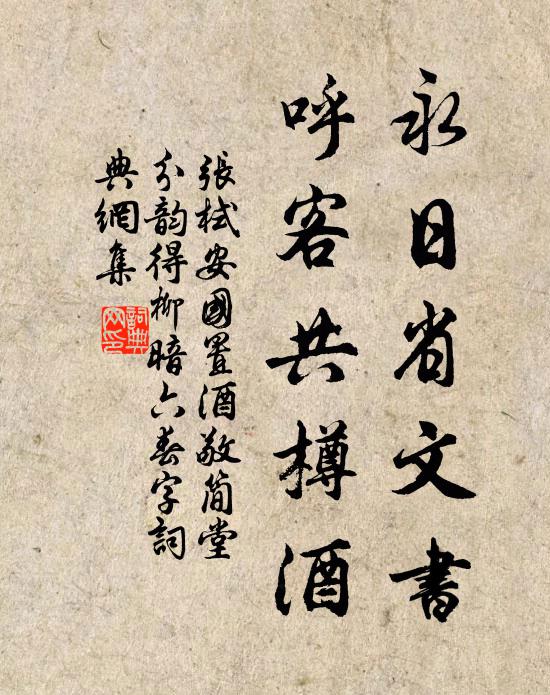 永日省文書
呼客共樽酒
張栻安國置酒敬簡堂
分韵得柳暗六春字詞
典網集
詞典網印